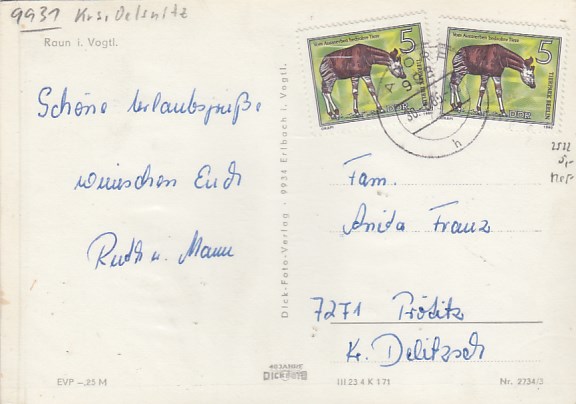 9931 Krs. Oelsnitz
Raun i. Vogtl.
Schöne Urlaubsgrüße
wünschen Euch
Ruth u. Mann
Dick-Foto-Verlag · 9934 Erlbach i. Vogtl.
5
TIERPARK BERLIN
DDR
5
TIERPARK BERLIN
DDR
h
Fam.
Anita Franz
7271
Kr. Delitzsch
40 JAHRE
DICK FOTO
EVP –,25 M
III 23 4 K 1 71
Nr. 2734/3